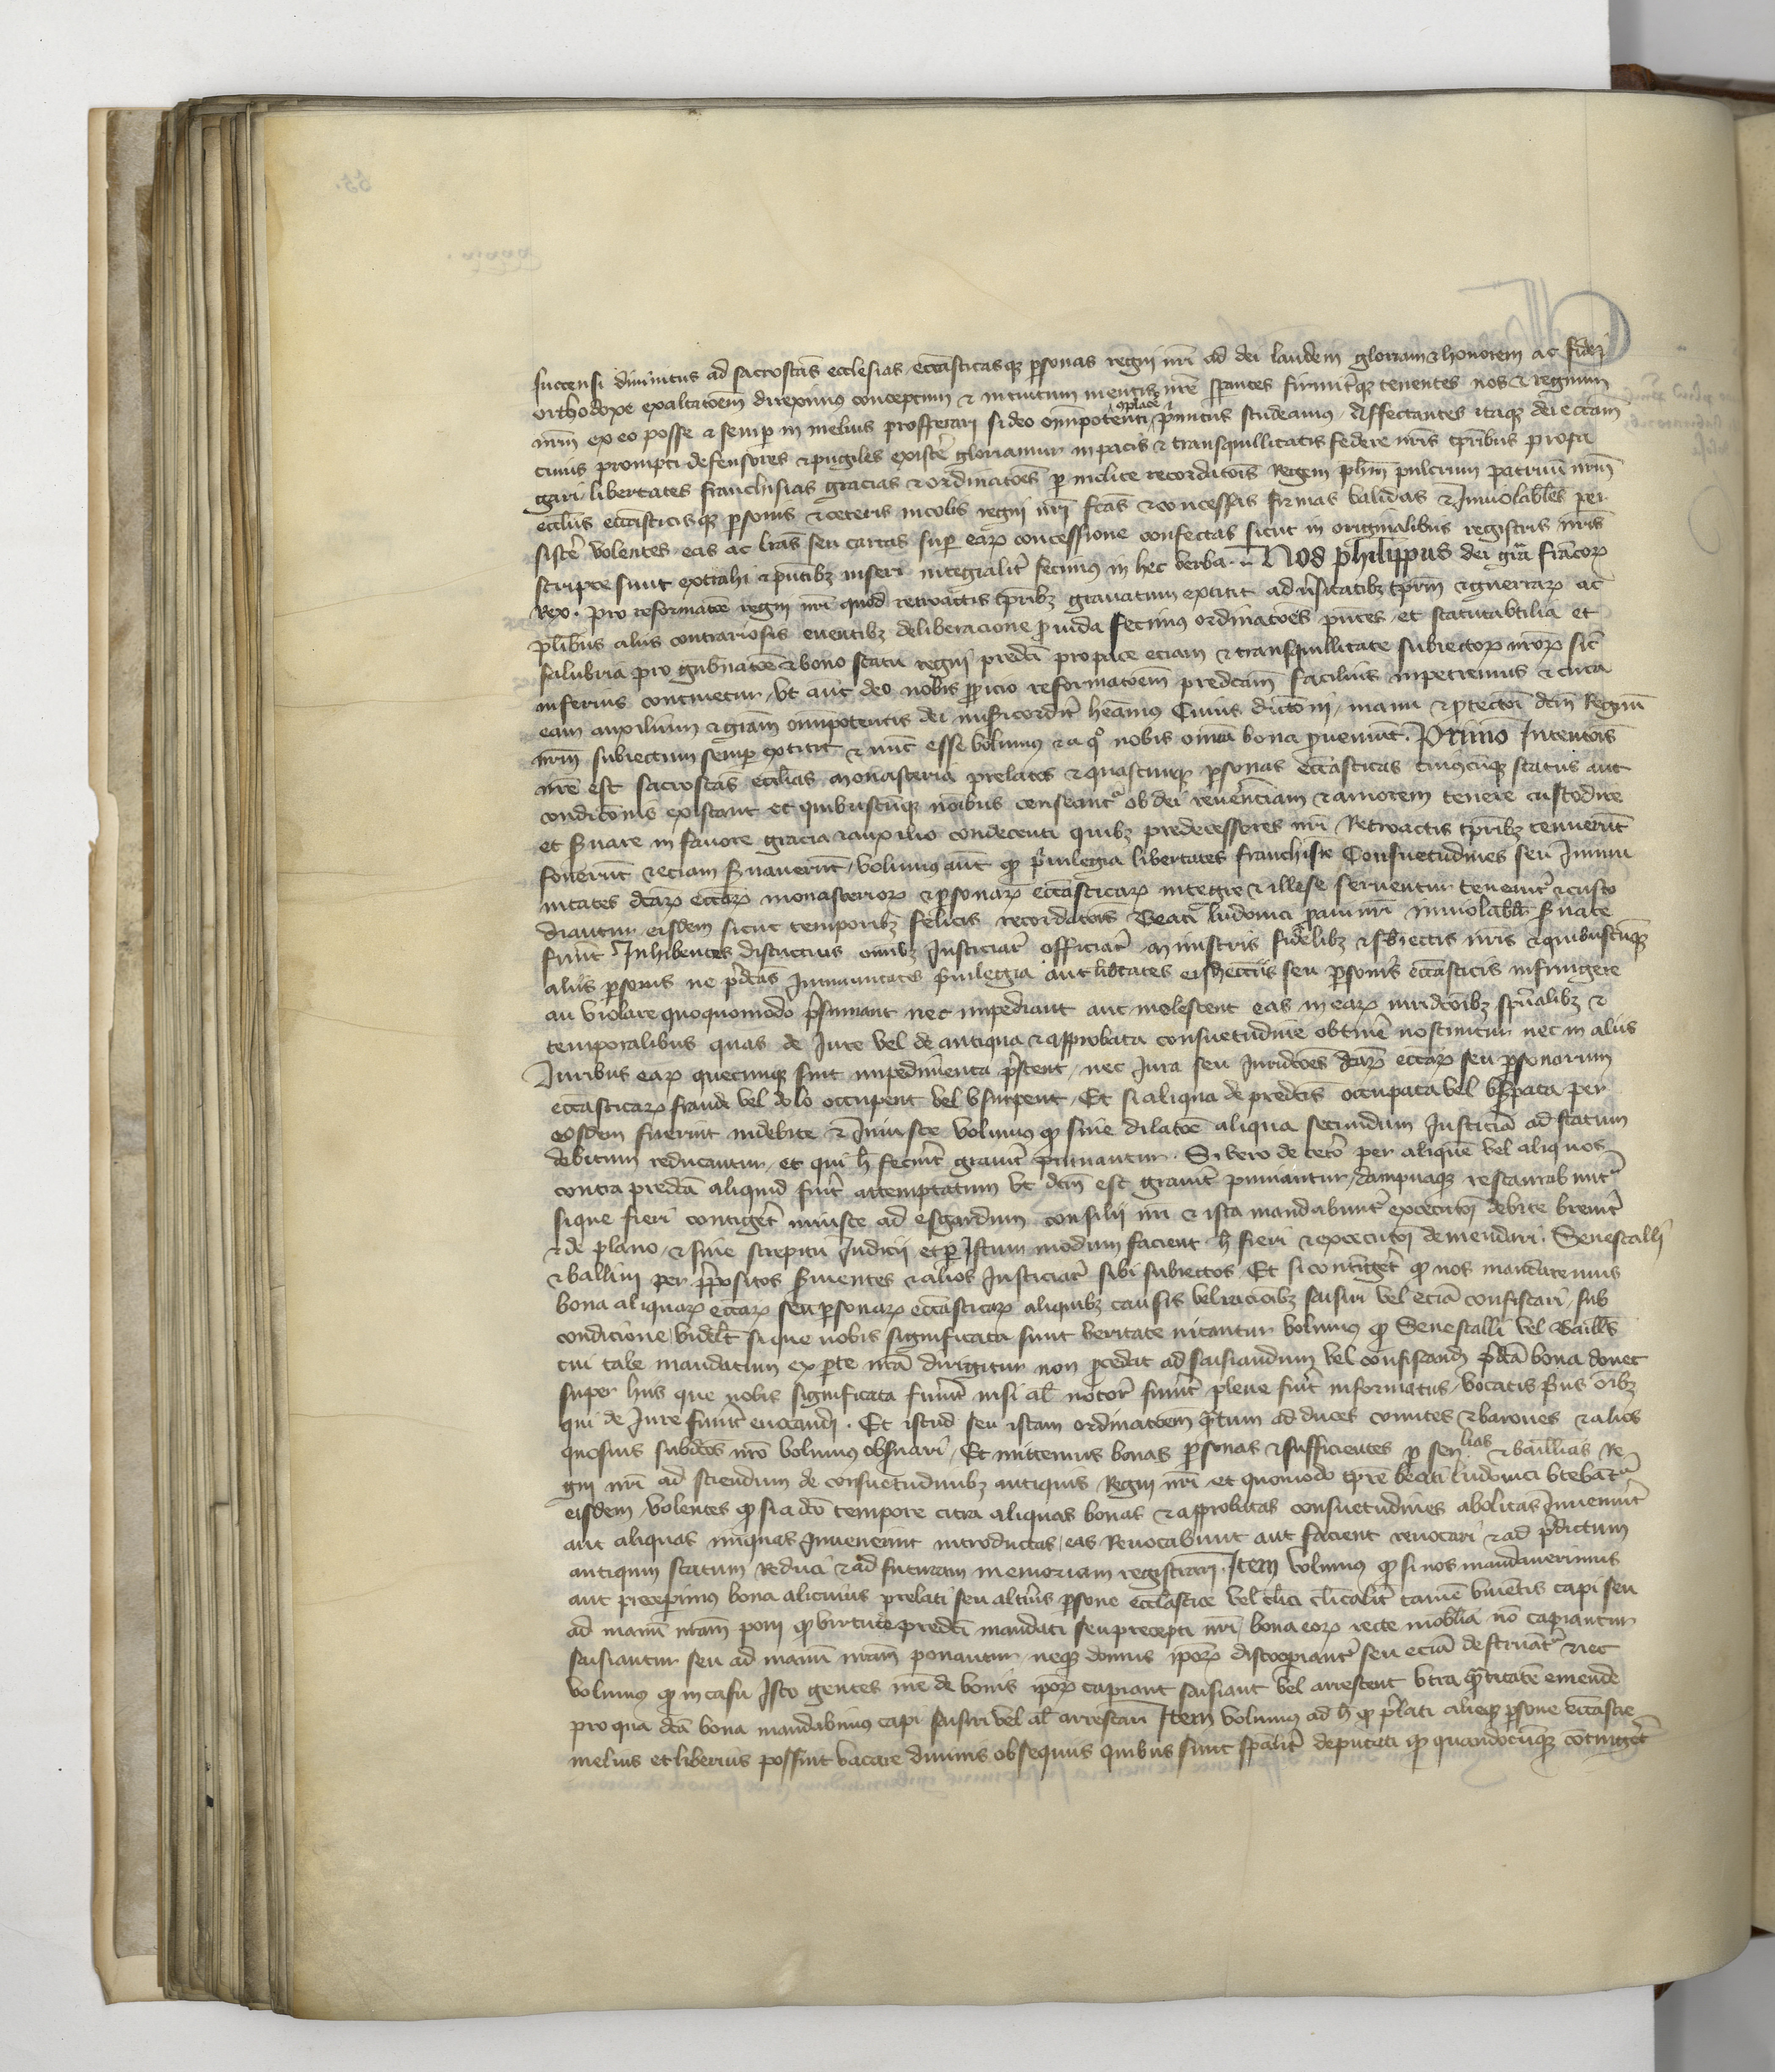 succensi diuinitus ad sacrosctas ecclesias eccasticasqz psonas regni nri ad dei laudem gloriam & honorem ac fidei
orthodoxe exaltatoem direximus conceptum & intuitum mentis nre spantes firmitqz tenentes nos & regnum
nrm ex eo posse & semp in melius prosperari si deo omipotenti complace pnitus studeamus . Affectantes itaqz dei eccam
cuius prompti defensores & pugiles existe gloriamur in pacis & transquillitatis federe nris tpribus profa
gari libertates franchisias gracias & ordinatoes p inclite recordatois Regem phm pulcrum patruu nrm
ecclus eccasticisqz psonis & ceteris incolis regni nri fcas & concessas firmas validas & Inuiolables per
siste volentes eas ac lras seu cartas sup earz concessione confectas sicut in originalibus registris nris
scripte sunt extrahi & pntibz inseri integralit fecimus in hec verba .. Nos philippus dei gra francorz
Rex . Pro reformatoe regni nri quod retroactis tpribz grauatum extitit aduersitatibz tprm & guerrarz ac
plibus aliis contrariosis euentibz deliberacione puida fecimus ordinatoes pntes et statuta vtilia et
salubria pro gubnatoe & bono statu regni predci pro pace eciam & transquillitate subiectorz nrorz sic
inferius continetur . vt aut deo nobis ppicio reformatoem predcam facilius inpetremus & circa
eam auxilium & gram omipotentis dei misicordit heamus Cuius dictoni manu & ptectoi dcm Regnu
nrm subiectum semp extitit & nuc esse volumus & a quo nobis omia bona pueniut . Primo Intentois
nre est sacrosctas ecclias monasteria prelatos & quascunqz psonas eccasticas cuiuscuqz status aut
conditonis existant et quibuscuqz noibus censeant ob dei reuerenciam & amorem tenere custodire
et suare in fauore gracia & auxilio condecenti quibz predecessores nri Retroactis tpribz tenuerut
fouerut & eciam suauerut . volumus aut qp priuilegia libertates franchisie Consuetudines seu Immu
nitates dcarz eccarz monasteriorz & psonarz eccasticarz integre & illese seruentur teneant & custo
diantur eisdem sicut temporibz felicis recordatois Beati ludouici paui nri inuiolablr suate
fuint Inhibentes districtius omibz Justiciar officiar ministris fidelibz & subiectis nris & quibuscuqz
aliis psonis ne pdcas Immunitates priuilegia aut libtates eis ecciis seu psonis eccasticis infringere
au violare quoquomodo psumant nec impediant aut molestent eas in earz iuridcoibz spualibz &
temporalibus quas de Jure vel de antiqua & approbata consuetudine obtine noscuntur nec in aliis
Juribus earz quecunqz sint impedimenta pstent . nec Jura seu Juridcoes dcarz eccarz seu psonarum
eccasticarz fraude vel dolo occupent vel vsurpent . Et si aliqua de predcis occupata vel vsurpata per
eosdem fuerint indebite & Iniuste volumus qp sine dilatoe aliqua secundum Justiciam ad statum
debitum reducantur . et qui h fecint grauit puniantur . Si vero de cetero per alique vel aliquos
contra predca aliquid fuit attemptatum vt dcm est grauit puniantur . dampnaqz restaurabuntr
si que fieri contiget iniuste ad esgardum consilii nri & ista mandabuntr execucoi debite breuit
& de plano . & sine strepitu Judicij et p Istum modum facient h fieri & execucoi demendari . Senescalli
& balliui per ppositos suientes & alios Justiciar sibi subiectos . Et si contiget qp nos mandaremus
bona aliquarz eccarz seu psonarz eccasticarz aliquibz causis vel racioibz saisiri vel ecia confiscari . sub
condicione videlt si que nobis significata sunt veritate nitantur volumus qp Senescalli vel Baillis
cui tale mandatum ex pte nra dirigitur non pcedat ad saisiandum vel confiscand pdca bona donec
super hiis que nobis significata fuerint nisi al notor fuint plene fuit informatus . vocatis suis oibz
qui de Jure fuint euocandi . Et istud seu istam ordinatoem qtum ad duces comites & barones & alios
quosuis subdcos nro volumus obsuari . Et mittemus bonas psonas & sufficientes p senlias & baillias Re
gni nri ad sciendum de consuetudinibz antiquis Regni nri et quomodo tpre beati ludouici vtebatr
eisdem . volentes qp si a dco tempore citra aliquas bonas & approbatas consuetudines abolitas Inuenint
aut aliquas iniquas Inuenerint introductas . eas Reuocabunt aut facient reuocari & ad pdictum
antiquum statum Reduci & ad futuram memoriam registrari . Item volumus qp si nos mandauerimus
aut preceperimus bona alicuius prelati seu altius psone ecclastice vel clici clicalit tame viuentis capi seu
ad manu nram poni qp virtute predci mandati seu precepti nri . bona eorz recte mobilia no capiantur
saisiantur seu ad manu nram ponantur . neqz domus ipoz discoopiant seu ecia destruatr & nec
volumus qp in casu Isto gentes nre de bonis ipoz capiant saisiant vel arrestent vltra qtitate emende
pro qua dca bona mandabimus capi saisiri vel al arrestari Item volumus ad h qp plati alieqz psone eccastice
melius et liberius possint vacare diuinis obsequiis quibus sunt spalit deputati qp quandocuqz contiget